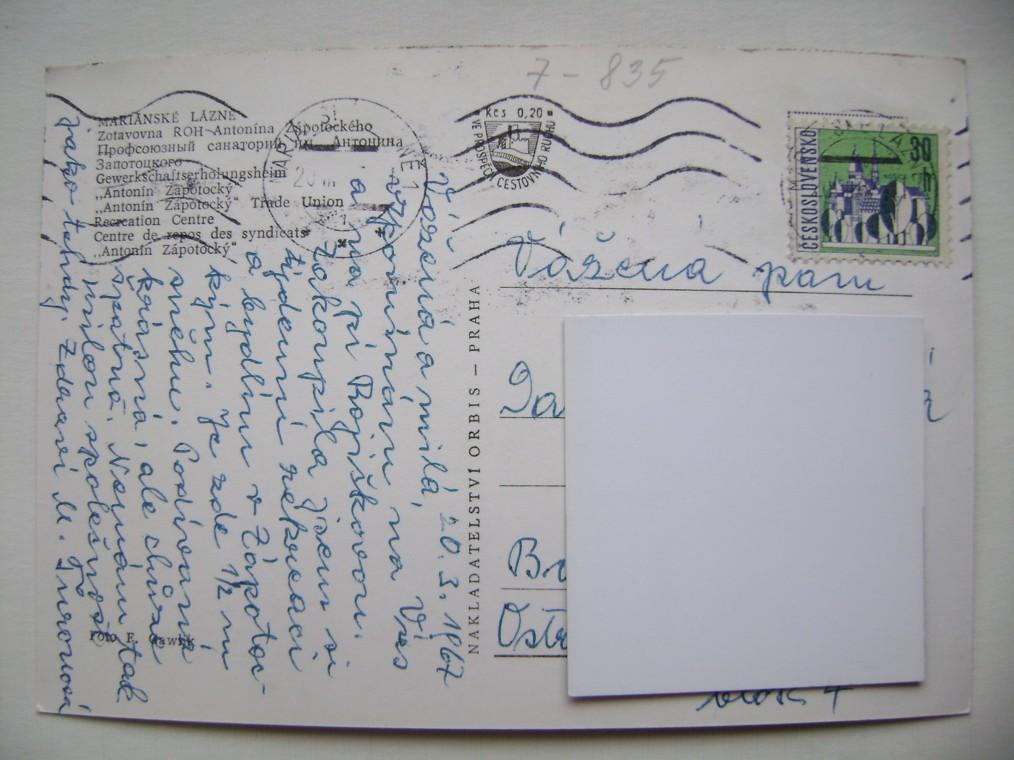 7 - 835
MARIÁNSKÉ LÁZNĚ
Zotavovna ROH Antonína Zápotockého
Профсоюзный санаторий им. Антонина
Запотоцкого
Gewerkschaftserholungsheim
„Antonín Zápotocký"
„Antonín Zápotocký" Trade Union
Recreation Centre
Centre de repos des syndicats
„Antonín Zápotocký"
Kčs 0,20
VE PROSPĚCH CESTOVNÍHO RUCHU
ČESKOSLOVENSKO
30
20. 3. 1967
Vážená a milá,
vzpomínám na Vás
a na pí Rojíškovou.
Zakoupila jsem si
týdenní rekreaci
a bydlím v Zápotoc-
kým. Je zde 1/2 m
sněhu. Podívaná
krásná, ale chůze
špatná. Nemám tak
milou společnost
jako tehdy. Zdraví M.
Foto E.
NAKLADATELSTVÍ ORBIS – PRAHA
Vážená paní
Da
Br
Ostr
blok 4